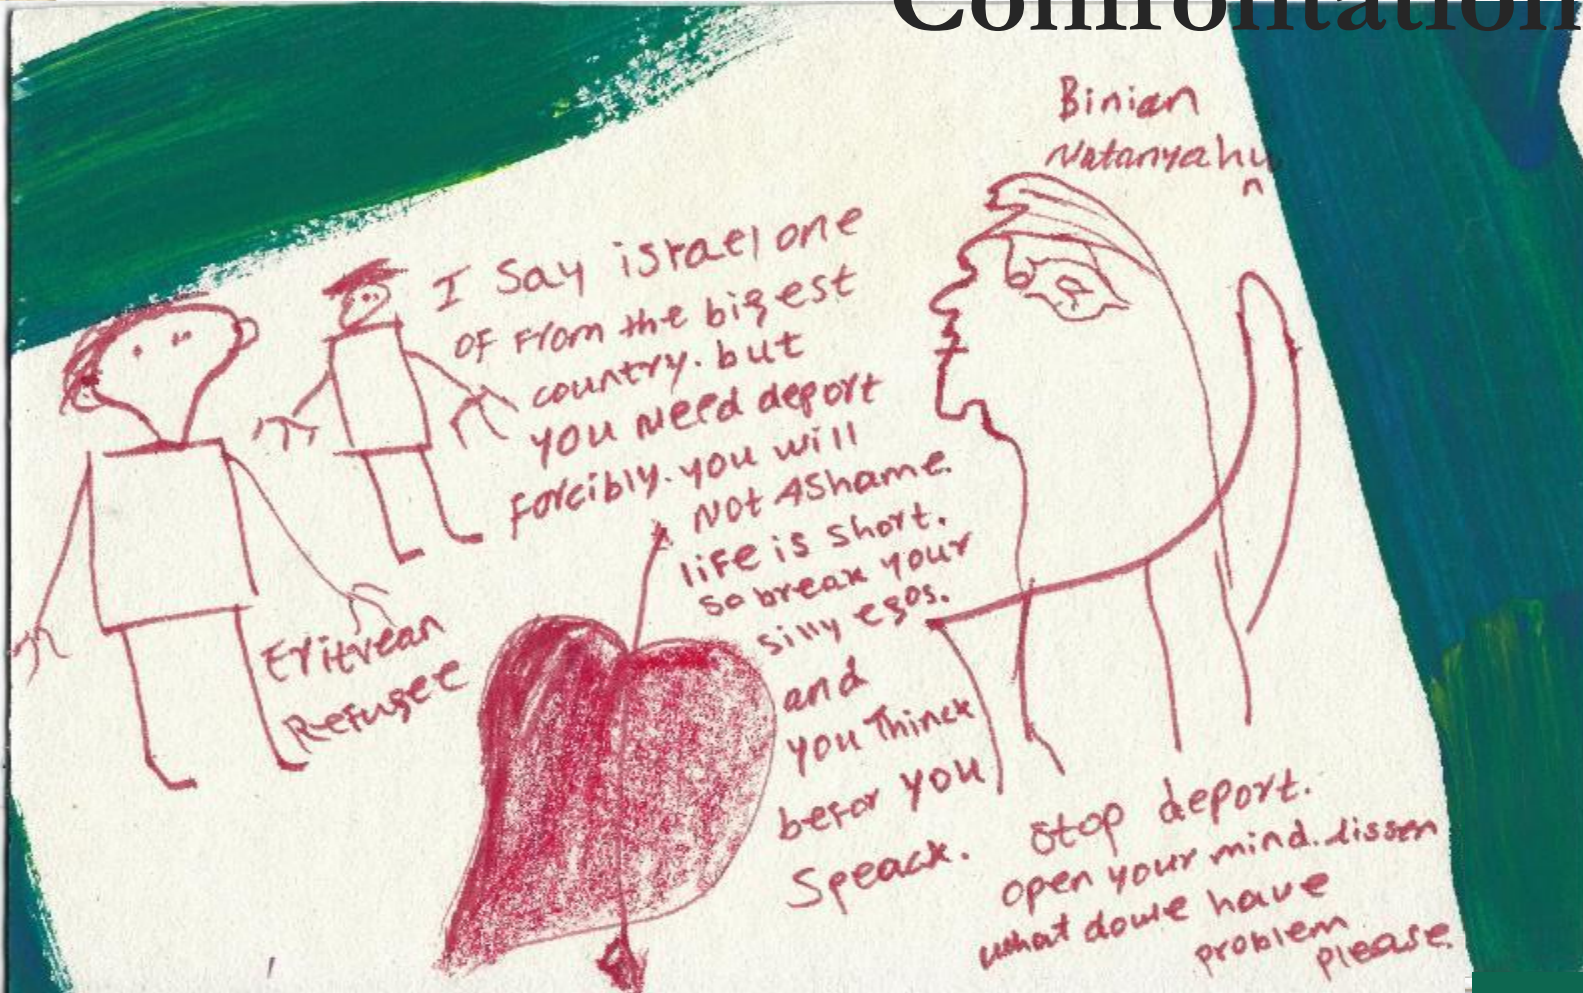 Confrontation
Binian
Natanyahu
I Say israel one
of from the bigest
country. but
you need deport
forcibly. you will
Not Ashame.
life is short.
so break your
silly egos.
and
you Thinck
befor you
Speack.
Stop deport.
open your mind. lissen
what do we have
problem
please.
Eritrean
Refugee